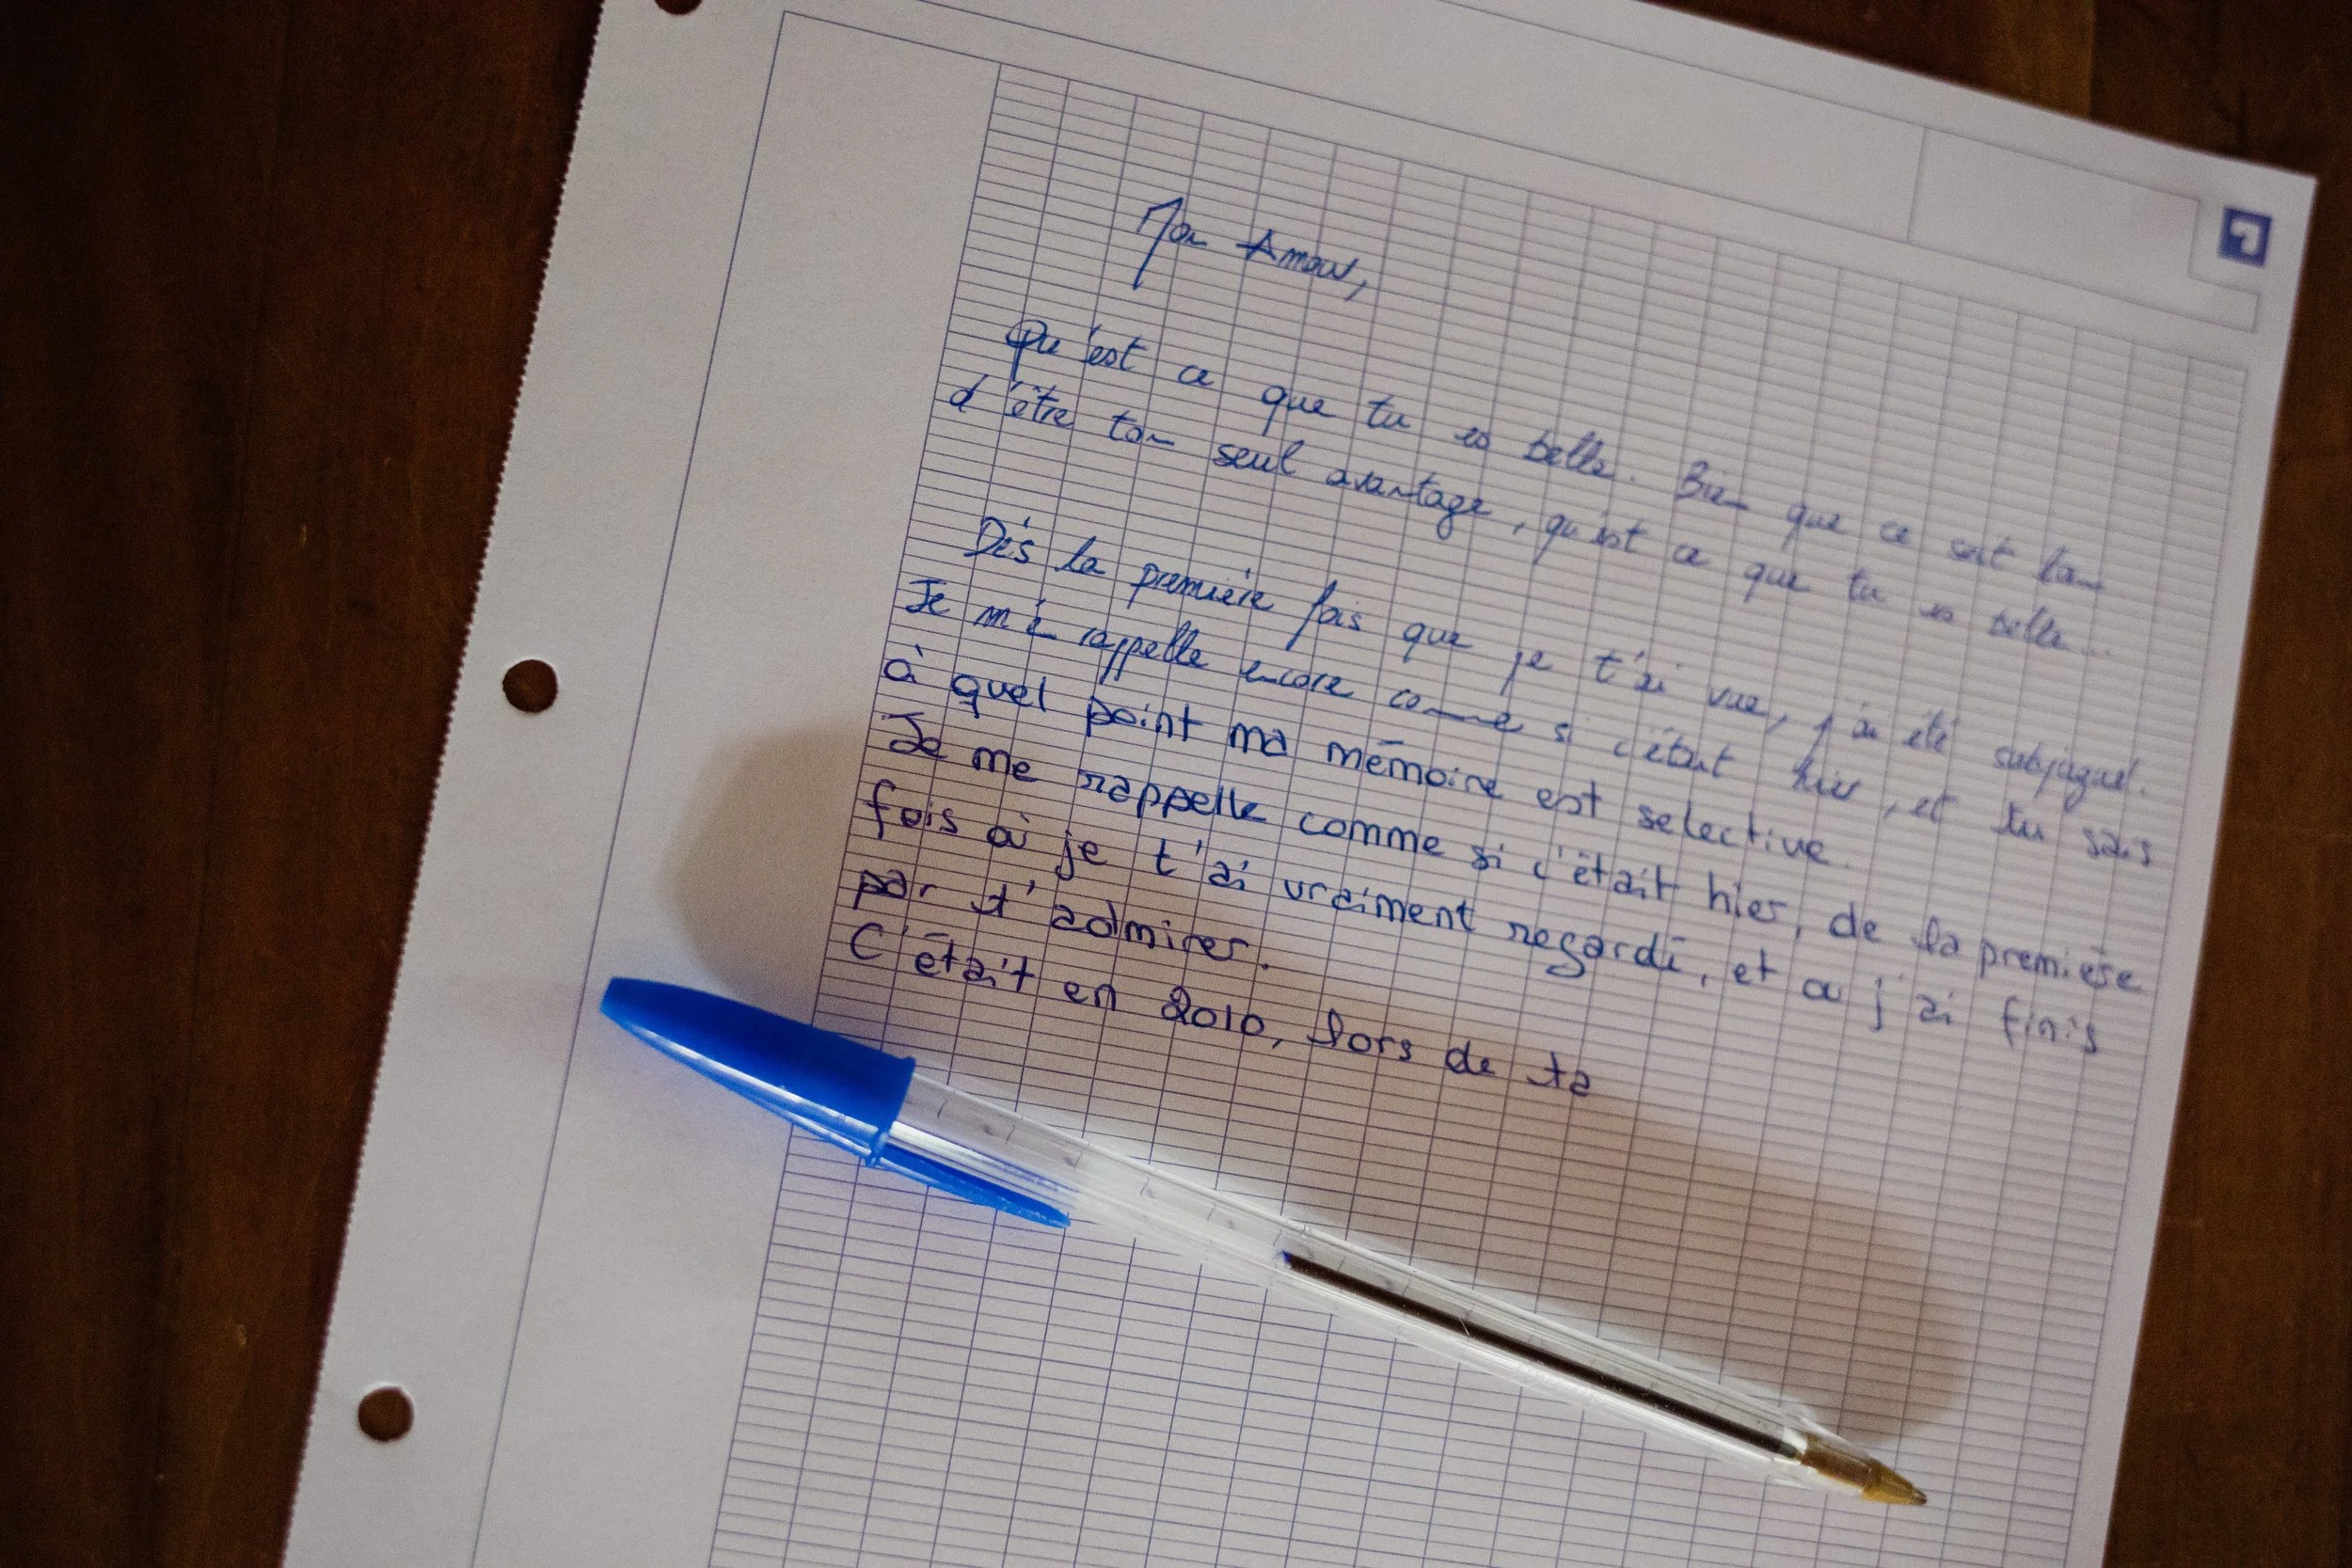 Mon Amour,
Qu'est ce que tu es belle. Bien que ce soit loin
d'être ton seul avantage, qu'est ce que tu es belle...
Dès la première fois que je t'ai vue, j'ai été subjugué.
Je m'en rappelle encore comme si c'était hier, et tu sais
à quel point ma mémoire est selective.
Je me rappelle comme si c'était hier, de la première
fois où je t'ai vraiment regardé, et où j'ai finis
par t'admirer.
C'était en 2010, lors de ta